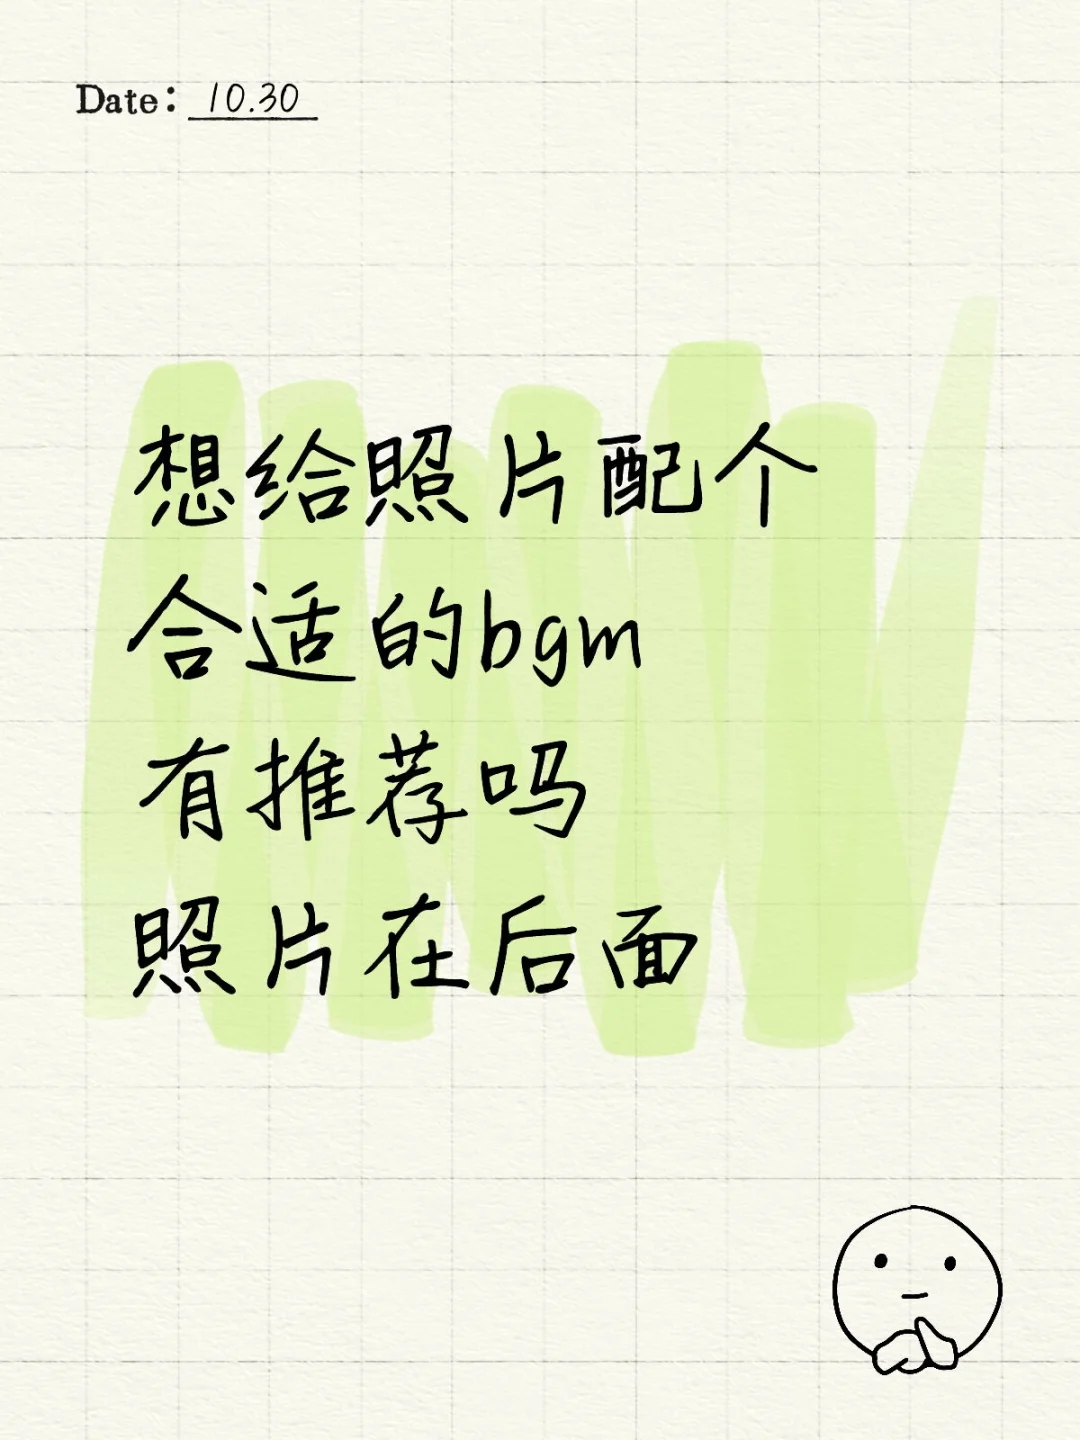 Date: 10.30
想给照片配个
合适的bgm
有推荐吗
照片在后面